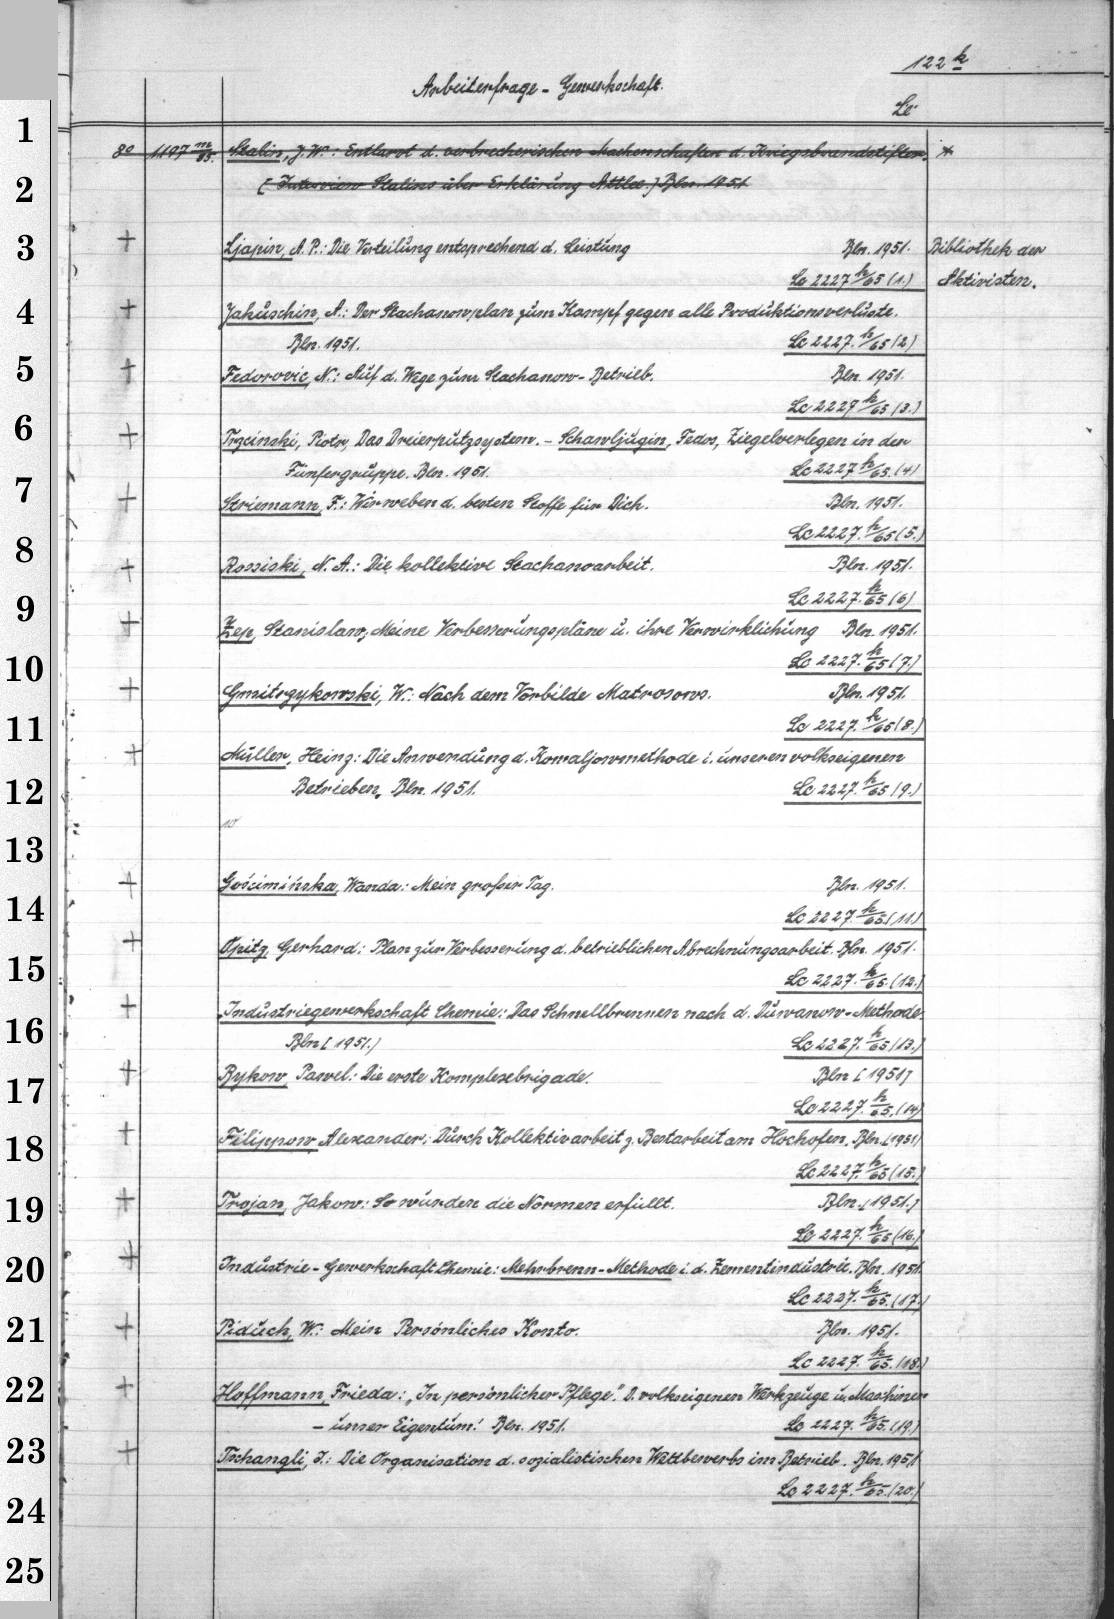 122 k
Arbeiterfrage - Gewerkschaft.
Lc
1
8° 1197 m/65. Stalin, J. W.: Entlarvt d. verbrecherischen Machenschaften d. Kriegsbrandstifter.
2
[Interview Stalins über Erklärung Attlee.] Bln. 1951
3
+ Ljapin, A. P.: Die Verteilung entsprechend d. Leistung Bln. 1951. Bibliothek der
Lc 2227 h/65 (1.) Aktivisten.
4
+ Jakuschin, A.: Der Stachanowplan zum Kampf gegen alle Produktionsverluste.
Bln. 1951. Lc 2227. h/65 (2)
5
+ Fedorovic, N.: Auf d. Wege zum Stachanow-Betrieb. Bln. 1951.
Lc 2227 h/65 (3.)
6
+ Trzcinski, Piotr, Das Dreierputzsystem. - Schawljugin, Fedor, Ziegelverlegen in der
Fünfergruppe. Bln. 1951. Lc 2227 h/65. (4)
7
+ Striemann, F.: Wir weben d. besten Stoffe für Dich. Bln. 1951.
Lc 2227. h/65 (5.)
8
+ Rossiski, N. A.: Die kollektive Stachanoarbeit. Bln. 1951.
Lc 2227. h/65 (6)
9
+ Zep, Stanislaw, Meine Verbesserungspläne u. ihre Verwirklichung Bln. 1951.
10
Lc 2227. h/65 (7.)
+ Gmitrzykowski, W.: Nach dem Vorbilde Matrosows. Bln. 1951.
11
Lc 2227. h/65 (8.)
+ Müller, Heinz: Die Anwendung d. Kowaljowmethode i. unseren volkseigenen
12
Betrieben. Bln. 1951. Lc 2227. h/65 (9.)
10
13
+ Gościmińska, Wanda: Mein großer Tag. Bln. 1951.
14
Lc 2227 h/65. (11.)
+ Opitz, Gerhard: Plan zur Verbesserung d. betrieblichen Abrechnungsarbeit. Bln. 1951.
15
Lc 2227. h/65. (12.)
+ Industriegewerkschaft Chemie: Das Schnellbrennen nach d. Duwanow-Methode
16
Bln [1951.] Lc 2227. h/65 (13.)
+ Bykow, Pawel: Die erste Komplexbrigade. Bln [1951]
17
Lc 2227. h/65. (14)
+ Filippow, Alexander: Durch Kollektivarbeit z. Bestarbeit am Hochofen. Bln. [1951]
18
Lc 2227. h/65 (15.)
+ Trojan, Jakow: So wurden die Normen erfüllt. Bln. [1951.]
19
Lc 2227. h/65 (16.)
+ Industrie-Gewerkschaft Chemie: Mehrbrenn-Methode i. d. Zementindustrie. Bln. 1951.
20
Lc 2227. h/65. (17.)
21
+ Piduch, W.: Mein Persönliches Konto. Bln. 1951.
Lc 2227. h/65. (18.)
22
+ Hoffmann, Frieda: „In persönlicher Pflege". D. volkseigenen Werkzeuge u. Maschinen
- unser Eigentum! Bln. 1951. Lc 2227. h/65. (19.)
23
+ Tschangli, I.: Die Organisation d. sozialistischen Wettbewerbs im Betrieb. Bln. 1951
Lc 2227. h/65. (20.)
24
25